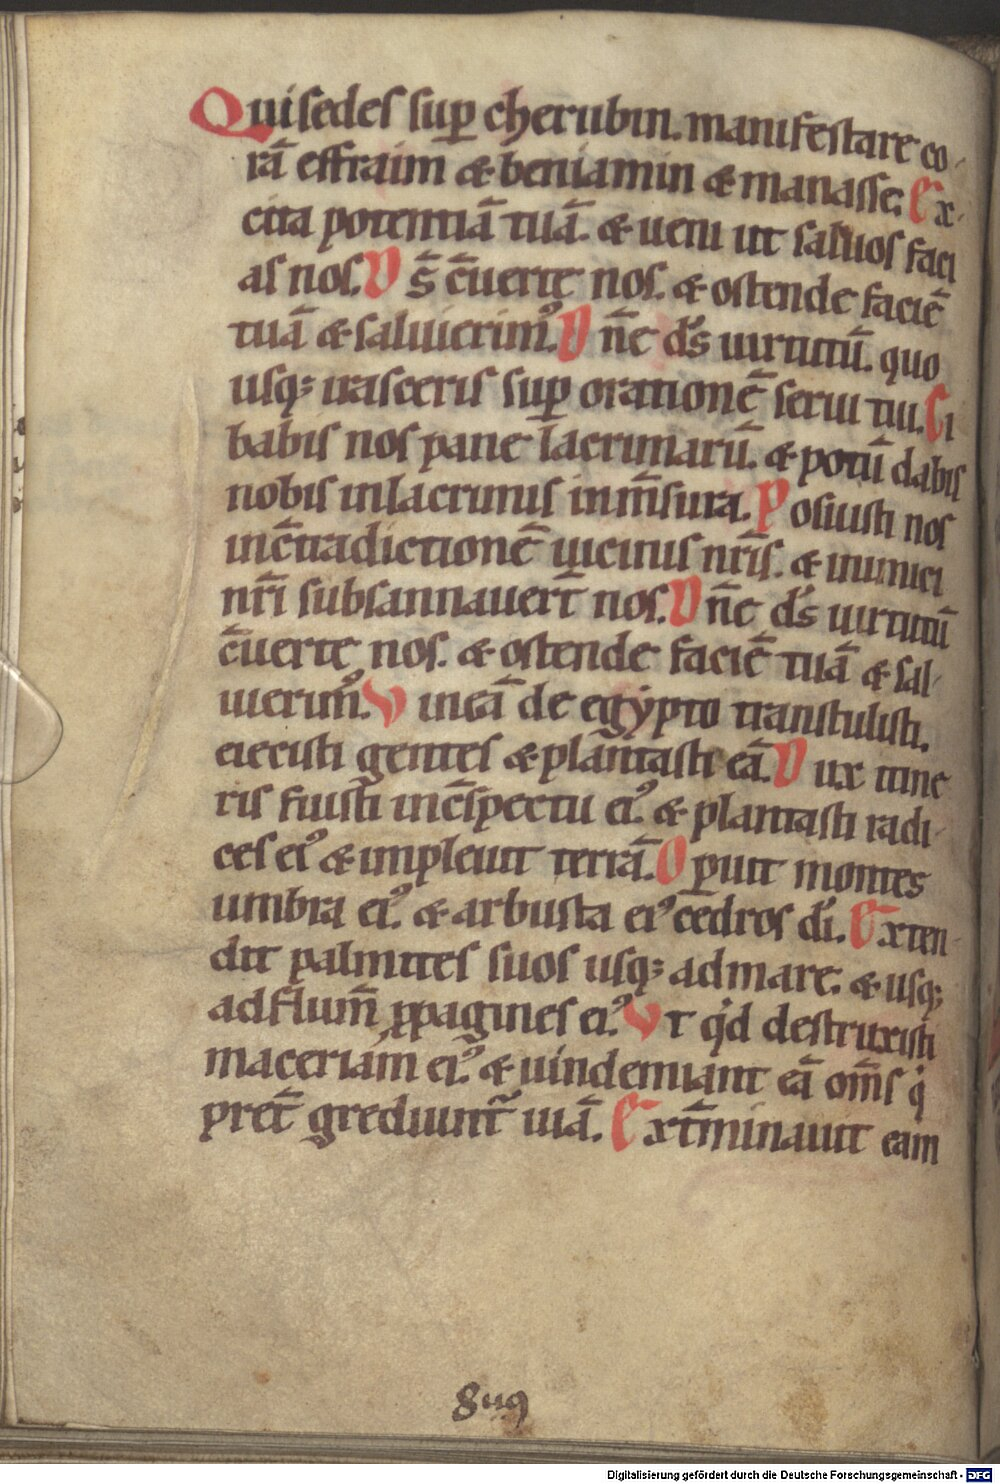 Qui sedes sup̱ cherubin. manifestare co-
rā effraim & beniamin & manasse. Ex-
cita potentiā tuā. & ueni ut saluos faci
as nos. D̄s c̄uerte nos. & ostende faciē
tuā & saluierim᾿. Dn̄e d̄s uirtutū. quo
usq; irasceris sup̱ orationē serui tui. Ci
babis nos pane lacrimarū. & potū dabis
nobis inlacrimis inm̄sura. Posuisti nos
inc̄tradictionē uicinis nr̄is. & inimici
nr̄i subsannauer̄t nos. Dn̄e d̄s uirtutū
c̄uerte nos. & ostende faciē tuā & sal-
uierim᾿. Vineā de egypto transtulisti.
eiecisti gentes & plantasti eā. Dux itine
ris fuisti inc̄spectu ei᾿. & plantasti radi-
ces ei᾿ & impleuit terrā. Op̱uit montes
umbra ei᾿. & arbusta ei᾿ cedros dī. Exten-
dit palmites suos usq; admare. & usq;
adflum̄ ꝓpagines ei᾿. Vt qͥd destruxisti
maceriam ei᾿. & uindemiant eā om̄s qͥ
pret̄ grediunt᷑ uiā. Ext̄minauit eam
Digitalisierung gefördert durch die Deutsche Forschungsgemeinschaft - DFG